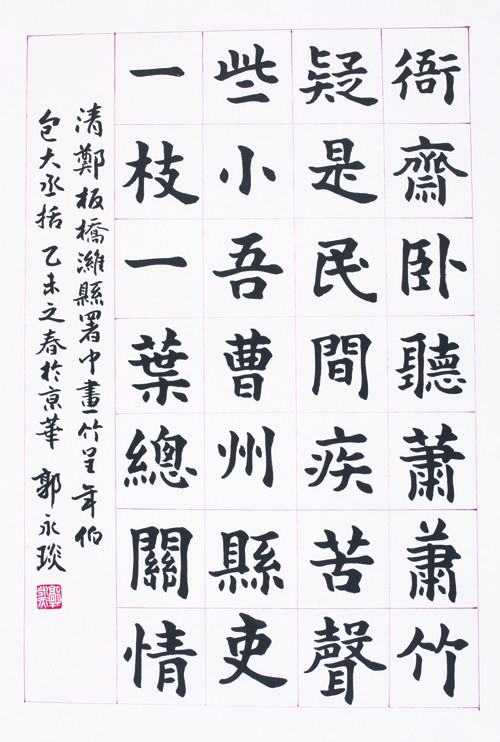 衙齋卧聽蕭蕭竹
疑是民間疾苦聲
些小吾曹州縣吏
一枝一葉總關情
清鄭板橋濰縣署中畫竹呈年伯
包大丞括 乙未之春於京華 郭永琰